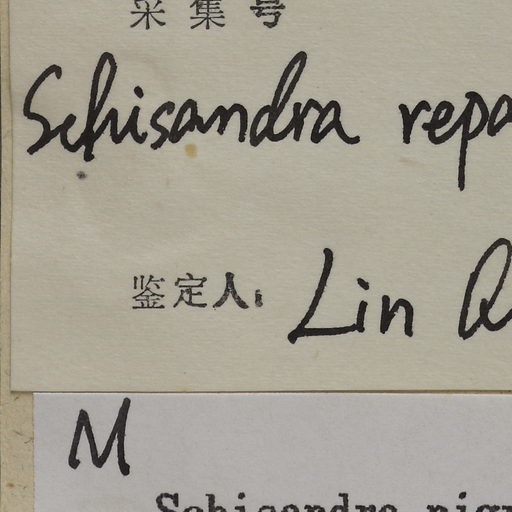 采集号
Schisandra repa
鉴定人: Lin Q
M
Schisandra nigr